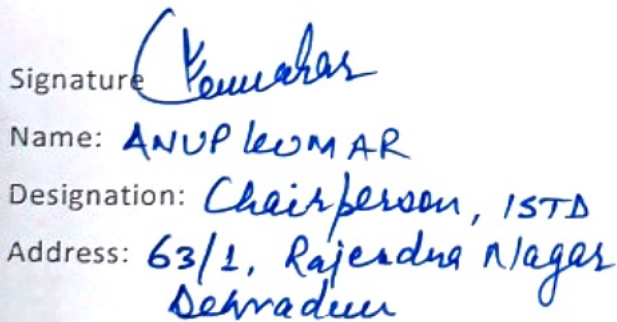 Signature
Name: ANUP KUMAR
Designation: Chairperson, ISTD
Address: 63/1, Rajendra Nagar
Dehradun